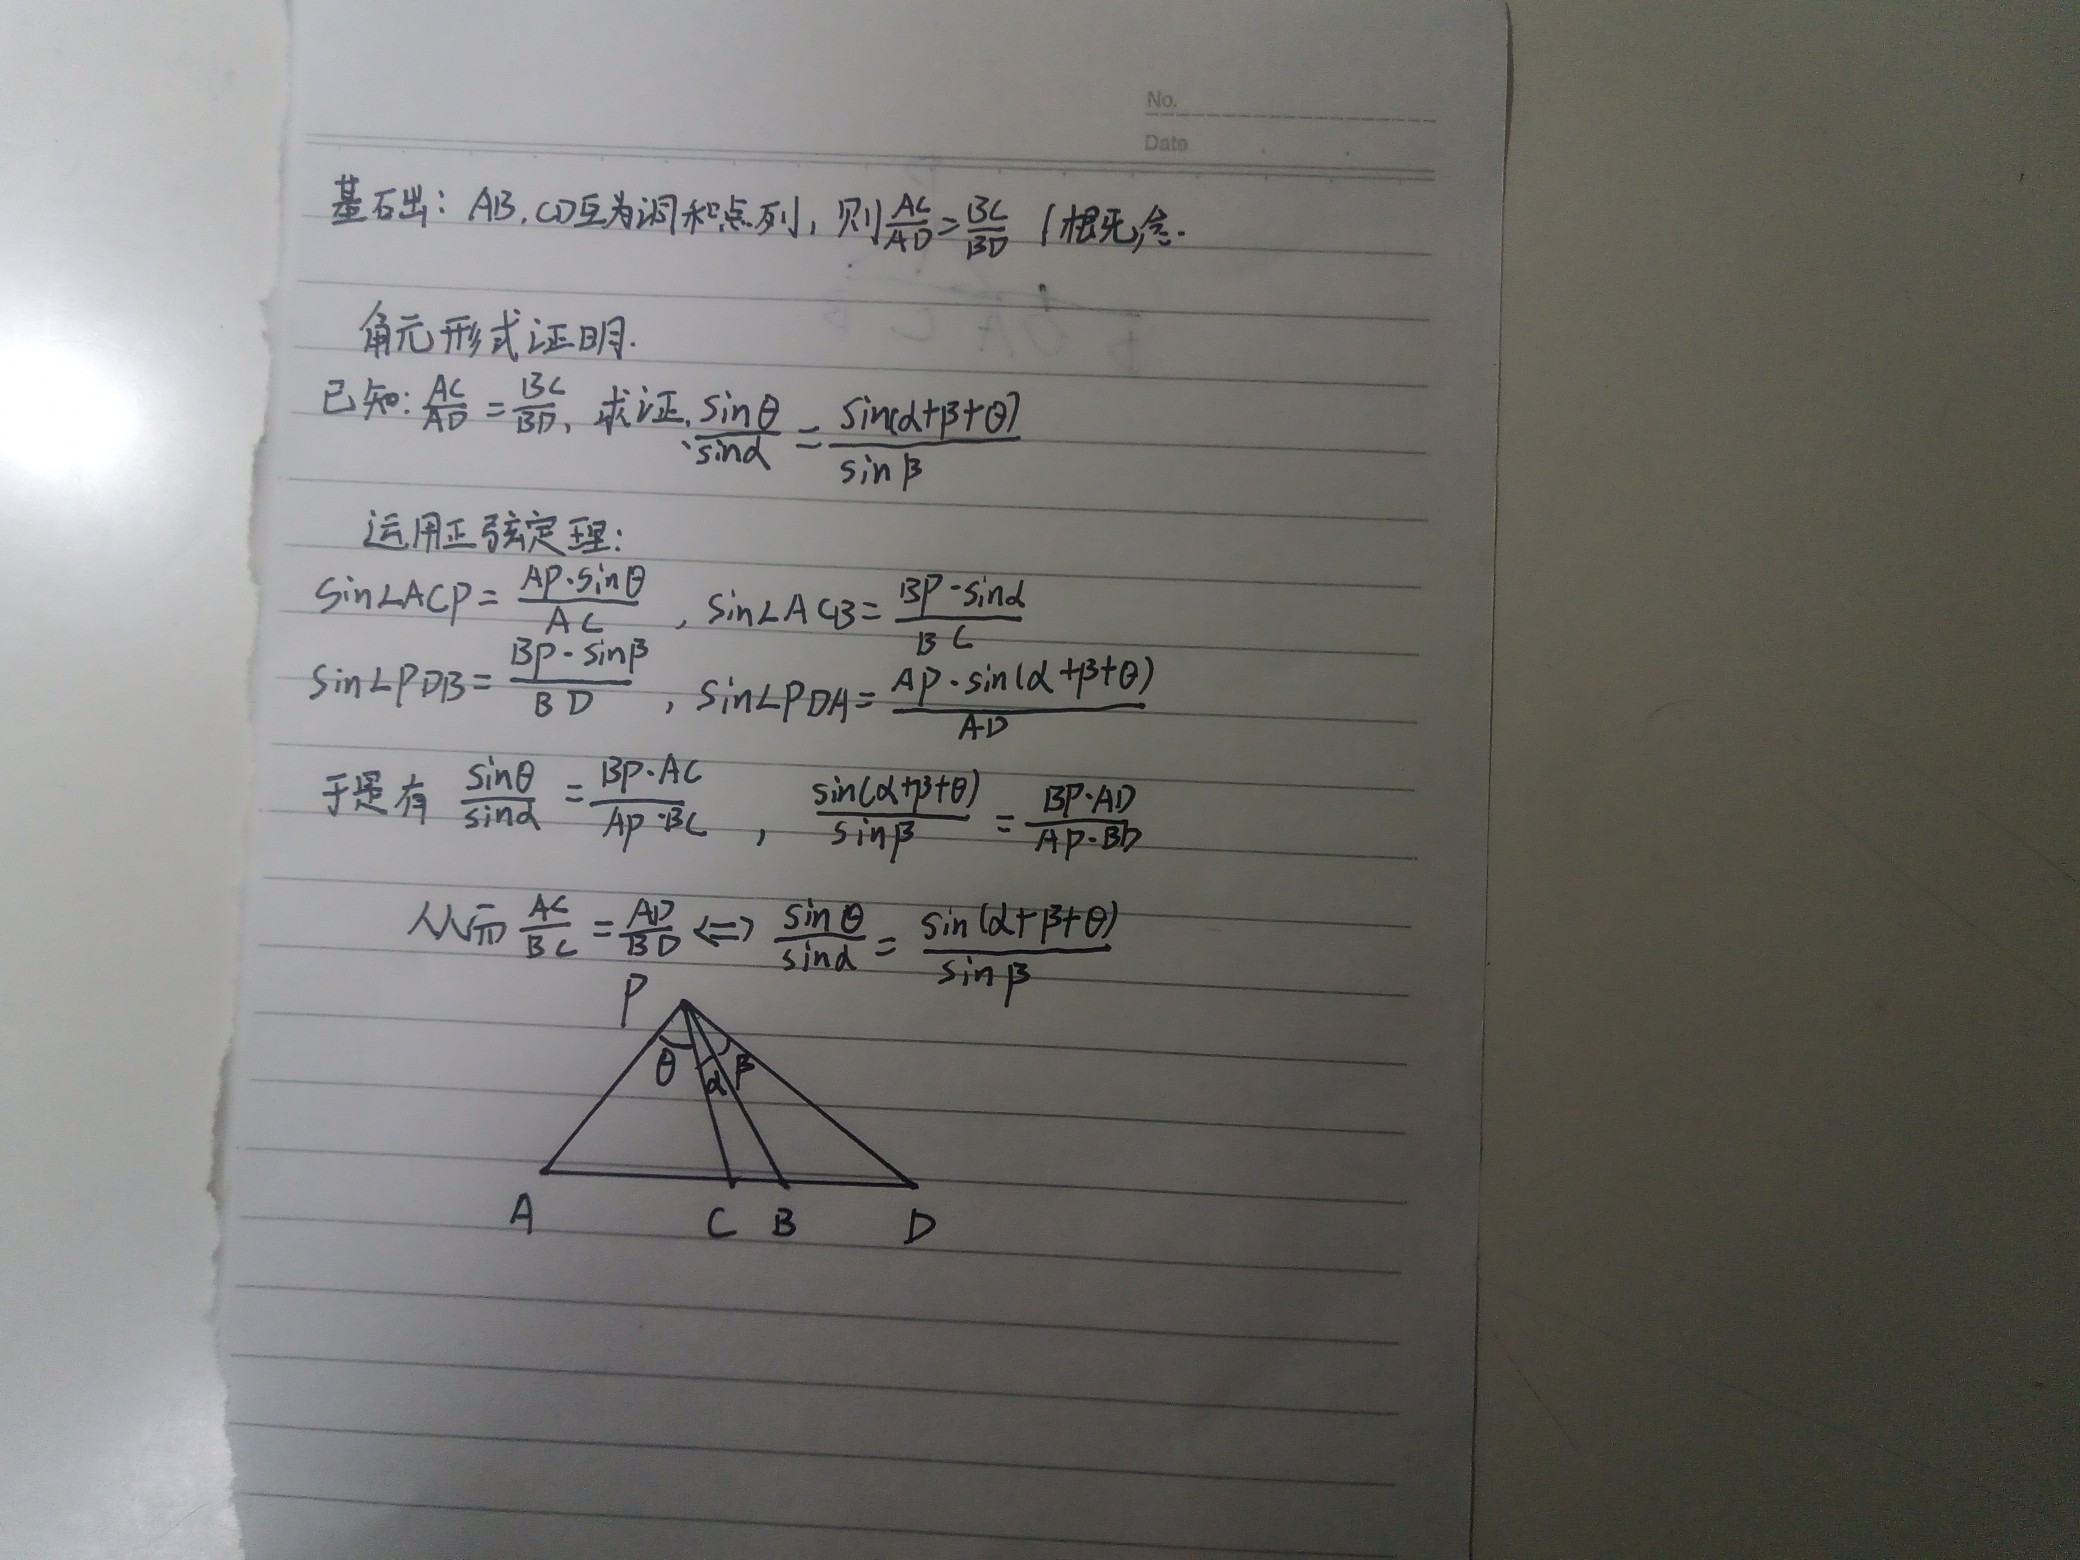 No.
Date
基石出：AB，CD互为调和点列，则AC/AD=BC/BD
角元形式证明.
已知：AC/AD=BC/BD，求证.sinθ/sinα=sin(α+β+θ)/sinβ
运用正弦定理：
sin∠ACP=AP·sinθ/AC，sin∠ACB=BP·sinα/BC
sin∠PDB=BP·sinβ/BD，sin∠PDA=AP·sin(α+β+θ)/AD
于是有 sinθ/sinα=BP·AC/AP·BC，sin(α+β+θ)/sinβ=BP·AD/AP·BD
从而AC/BC=AD/BD⇔sinθ/sinα=sin(α+β+θ)/sinβ
P
θ α β
A C B D